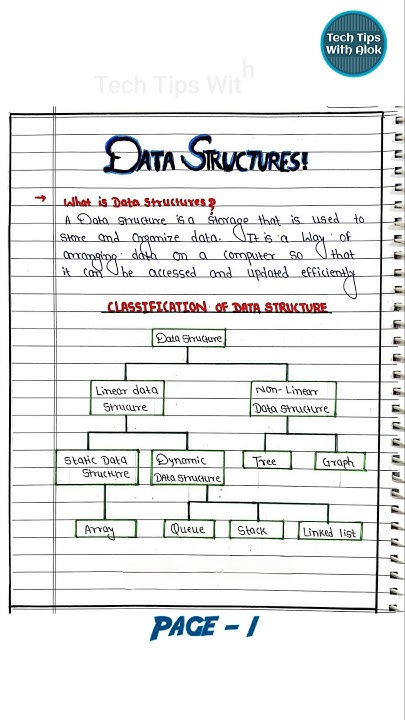 Tech Tips
With Alok
Tech Tips With
DATA STRUCTURES!
→ What is Data Structures?
A Data structure is a storage that is used to
store and organize data. It is a way of
arranging data on a computer so that
it can be accessed and updated efficiently
CLASSIFICATION OF DATA STRUCTURE
Data Structure
Linear data
Strucure
Non-Linear
Data Structure
Static Data
Structure
Dynamic
Data Structure
Tree
Graph
Array
Queue
Stack
Linked list
PAGE - 1